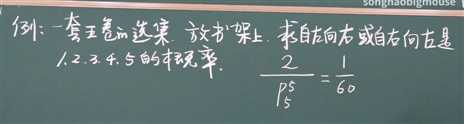 songhaobigmouse
例:一套五卷的选集.放书架上.求自左向右或自右向左是
1.2.3.4.5的概率. 2/P₅⁵ = 1/60